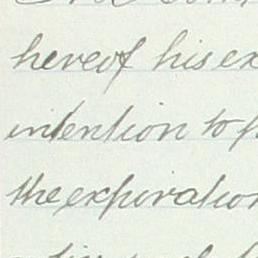 hereof his ex
intention to
the expiration